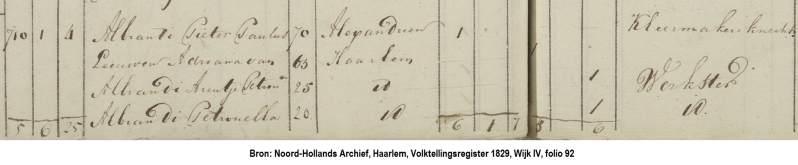 710 1 4 Albrandi Pieter Paulus 70 Alexandrien 1 Kleermakersknecht
Leeuwen Adriana van 63 Haarlem 1
Albrandi Arentje Petron^a 25 id 1 Werkster
Albrandi Petronella 20 id 1 id.
5 6 25 6 1 7 8 6
Bron: Noord-Hollands Archief, Haarlem, Volktellingsregister 1829, Wijk IV, folio 92